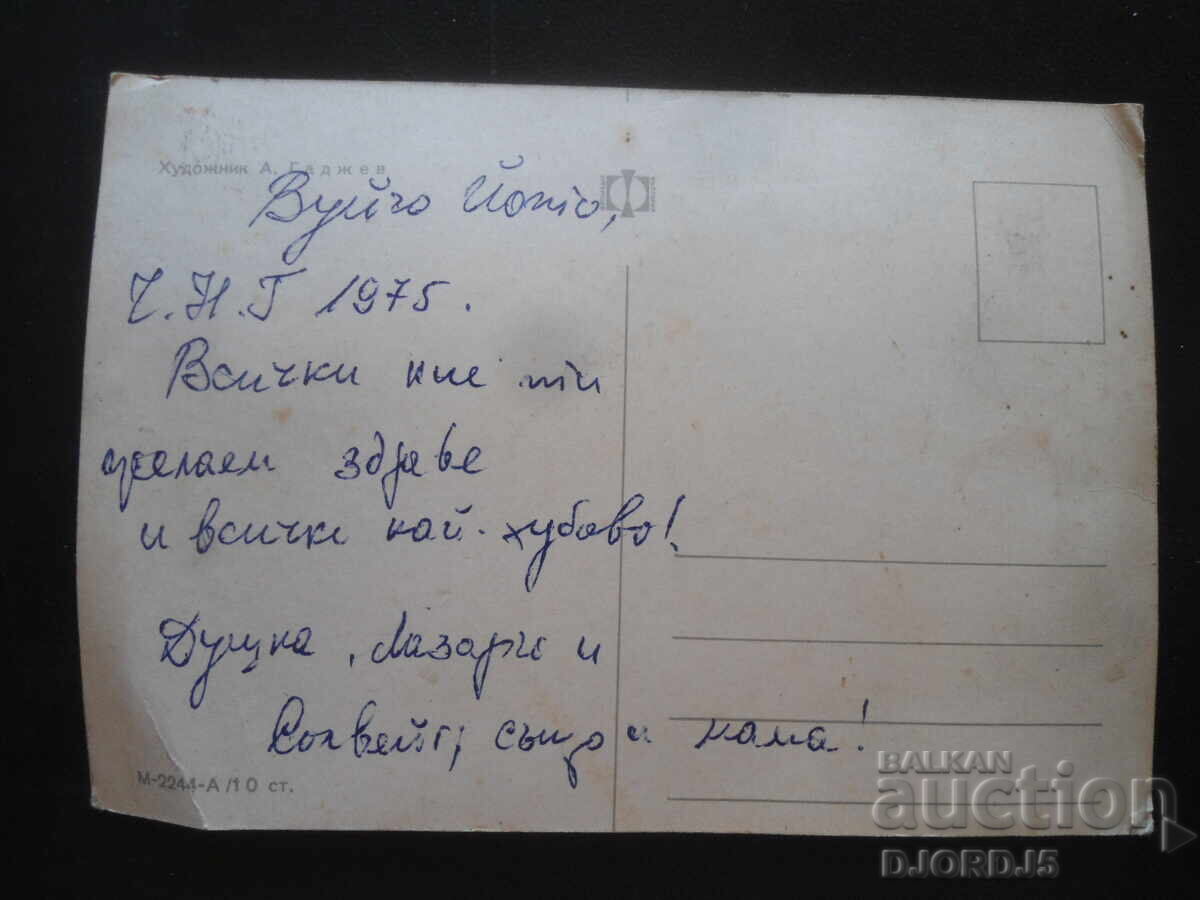 Художник А. Гаджев
Вуйчо
Ч.Н.Г 1975.
Всички ние ти
желаем здраве
и всичко най-хубаво!
Душка, Лазарчо и
Солвейг, също и мама!
М-2244-А/10 ст.
BALKAN
auction
DJORDJ5